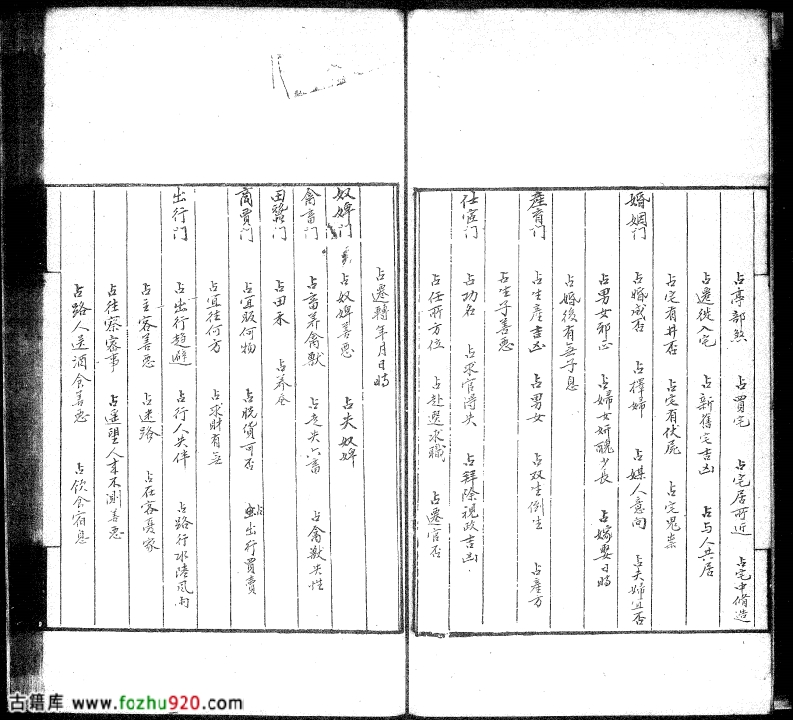 占亭部煞 占買宅 占宅居所近 占宅中脩造
占遷徙入宅 占新舊宅吉凶 占与人共居
占宅有井否 占宅有伏尸 占宅鬼祟
婚姻门 占婚成否 占擇婦 占媒人意向 占夫婦宜否
占男女邪正 占婦女妍醜少長 占嫁娶日時
占婚後有無子息
產育门 占生產吉凶 占男女 占双生倒生 占產方
占生子善惡
仕宦门 占功名 占求官得失 占拜除視政吉凶
占任所方位 占赴選求職 占遷官否
占遷轉年月日時
奴婢门 占奴婢善惡 占失奴婢
禽畜门 占畜养禽獸 占走失六畜 占禽獸失性
田蠶门 占田禾 占养蚕
商賈门 占宜販何物 占脱貨可否 占出行買賣
占宜往何方 占求財有無
出行门 占出行趨避 占行人失伴 占路行水陸風雨
占主客善惡 占迷路 占在客憂家
占往察客事 占遥望人来不測善惡
占路人送酒食善惡 占飲食宿息
古籍库 www.fozhu920.com